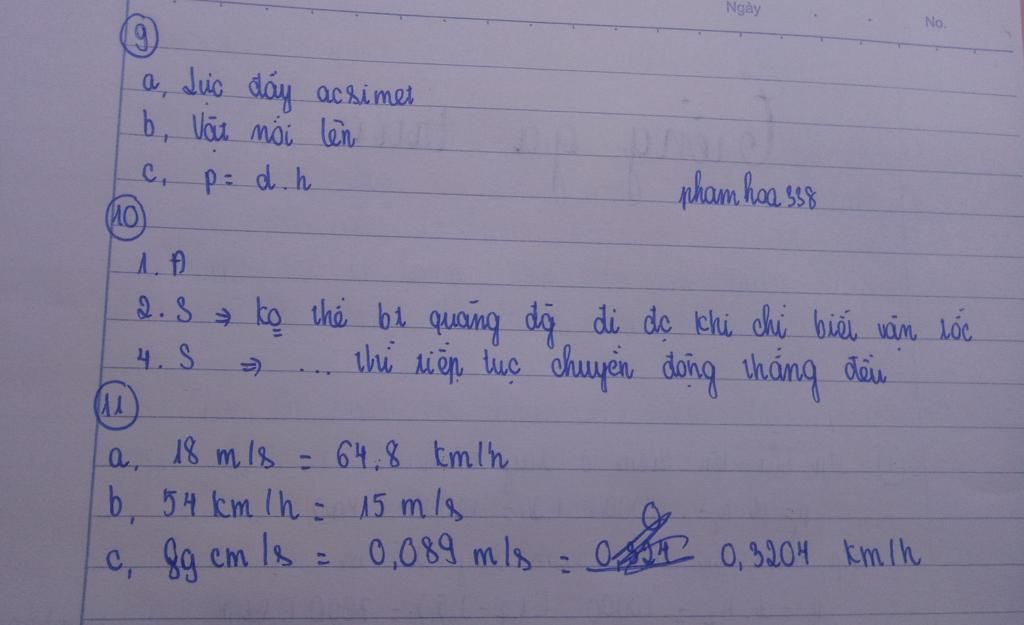 Ngày
No.
9
a, Lực đẩy acsimet
b, Vật nổi lên
c, p = d.h
phamhoa338
10
1. Đ
2. S => ko thể bt quãng đg đi đc khi chỉ biết vận tốc
4. S => ... thì tiếp tục chuyển động thẳng đều
11
a, 18 m/s = 64,8 km/h
b, 54 km/h = 15 m/s
c, 89 cm/s = 0,089 m/s = 0,3204 km/h